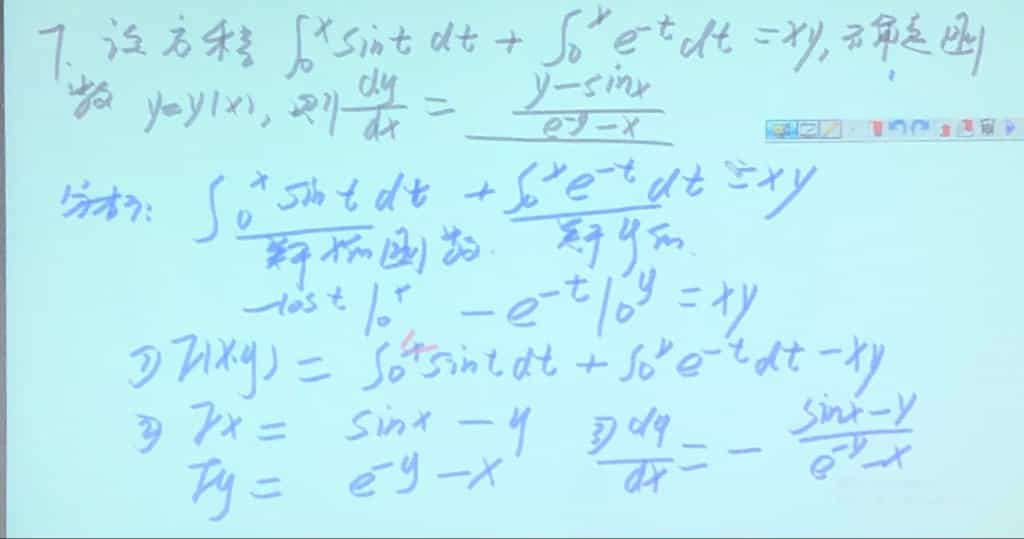 7. 设方程 ∫₀ˣ sint dt + ∫₀ʸ e^{-t} dt = xy, 确定函
数 y=y(x), 则 dy/dx = (y-sinx)/(e^{-y}-x)
分析: ∫₀ˣ sint dt + ∫₀ʸ e^{-t} dt = xy
关于x的函数. 关于y的
-cost |₀ˣ - e^{-t} |₀ʸ = xy
① F(x,y) = ∫₀ˣ sint dt + ∫₀ʸ e^{-t} dt - xy
② Fx = sinx - y ③ dy/dx = - (sinx-y)/(e^{-y}-x)
Fy = e^{-y} - x